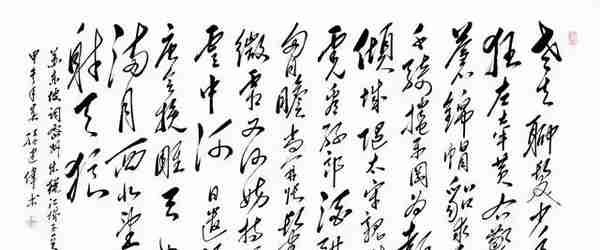 老夫聊發少
狂左牽黃右擎
蒼錦帽貂裘
千騎捲平岡為報
傾城隨太守親
虎看孫郎酒酣
胸膽尚開張鬢
微霜又何妨持
雲中何日遣
唐會挽雕弓
滿月西北望
射天狼
蘇東坡詞密州出獵江城子
甲午年 建偉書